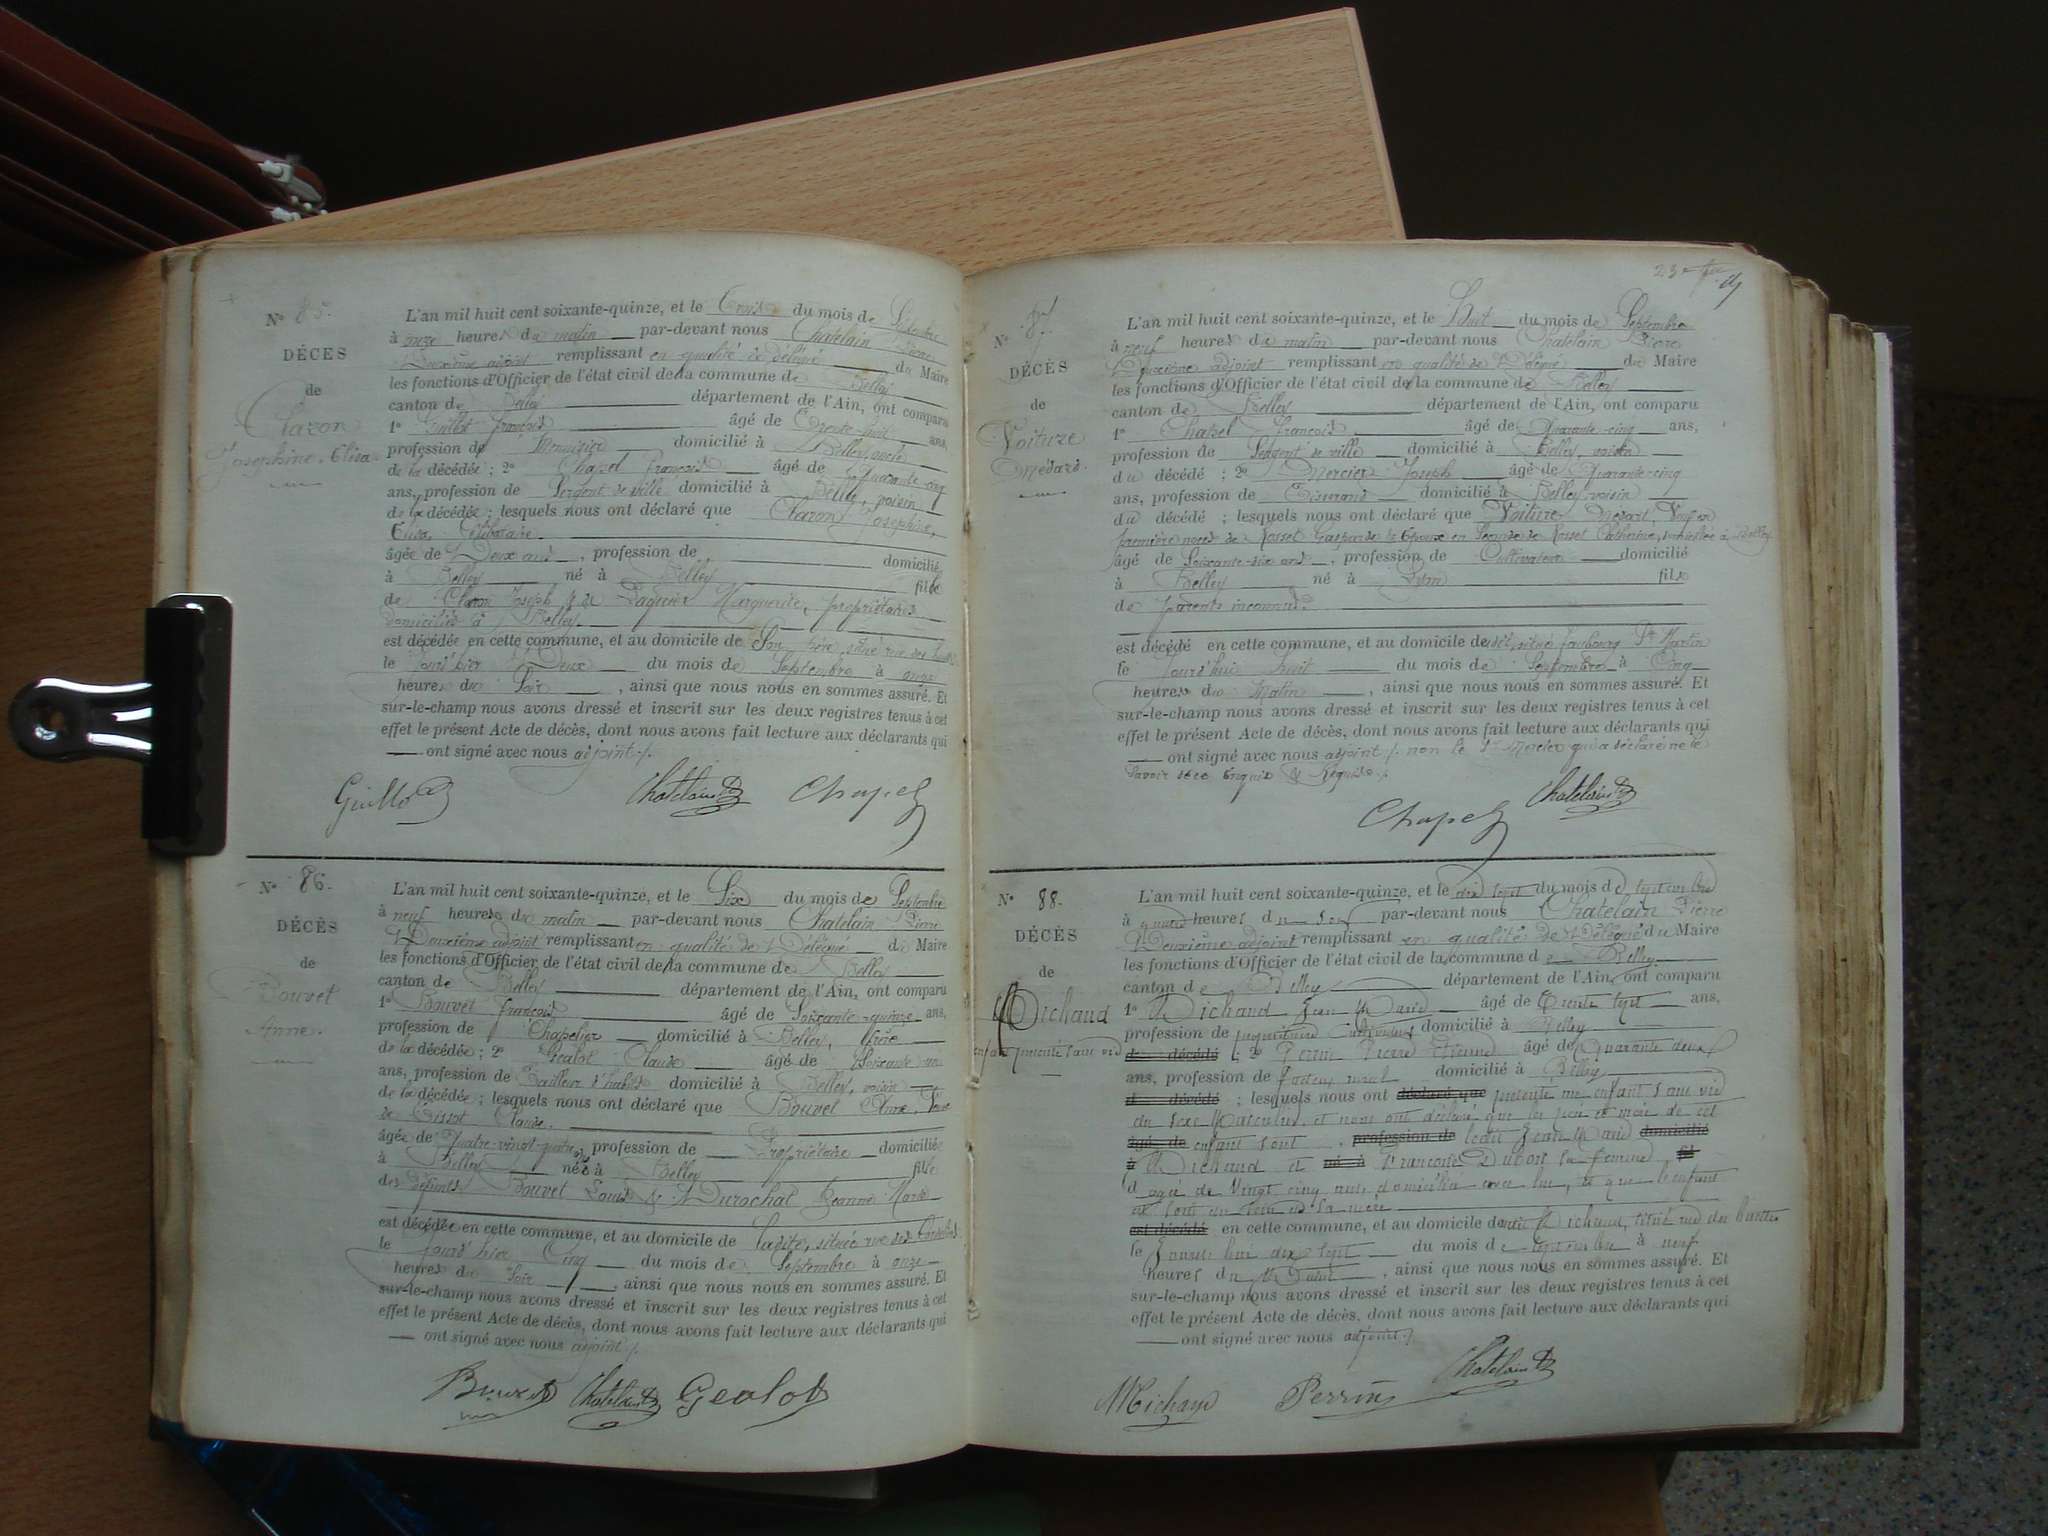 N° 85.
DÉCÈS
de
Claron
Josephine. Elisa
L'an mil huit cent soixante-quinze, et le Trois du mois de Septembre
à onze heures du matin par-devant nous Chatelain Pierre
Deuxième adjoint remplissant en qualité de délégué du Maire
les fonctions d'Officier de l'état civil de la commune de Belley
canton de Belley département de l'Ain, ont comparu
1° Guillot François âgé de Trente-huit ans,
profession de Menuisier domicilié à Belley, oncle
de la décédée ; 2° Chapel François âgé de Quarante-cinq
ans, profession de Sergent de ville domicilié à Belley, voisin
de la décédée ; lesquels nous ont déclaré que Claron Josephine,
Elisa, Célibataire.
âgée de Deux ans, profession de domicilié
à Belley né à Belley fille
de Claron Joseph & de Marguerite, propriétaires
domiciliés à Belley.
est décédée en cette commune, et au domicile de Son père, situé rue des
le jourd'hier Deux du mois de Septembre à onze
heures du Soir, ainsi que nous nous en sommes assuré. Et
sur-le-champ nous avons dressé et inscrit sur les deux registres tenus à cet
effet le présent Acte de décès, dont nous avons fait lecture aux déclarants qui
ont signé avec nous adjoint /.
Guillot Chatelain Chapel
N° 86.
DÉCÈS
de
Bouvet
Anne.
L'an mil huit cent soixante-quinze, et le Six du mois de Septembre
à neuf heures du matin par-devant nous Chatelain Pierre
Deuxième adjoint remplissant en qualité de Délégué du Maire
les fonctions d'Officier de l'état civil de la commune de Belley
canton de Belley département de l'Ain, ont comparu
1° Bouvet François âgé de Soixante-quinze ans,
profession de Chapelier domicilié à Belley, frère
de la décédée ; 2° Gealot Claude âgé de Soixante un
ans, profession de Tailleur d'habits domicilié à Belley, voisin
de la décédée ; lesquels nous ont déclaré que Bouvet Anne, Veuve
de Tissot Claude.
âgée de Quatre-vingt-quatre, profession de Propriétaire domiciliée
à Belley née à Belley fille
des défunts Bouvet Louis & Durochat Jeanne Marie
est décédée en cette commune, et au domicile de ladite, située rue des
le jourd'hier Cinq du mois de Septembre à onze
heures du Soir, ainsi que nous nous en sommes assuré. Et
sur-le-champ nous avons dressé et inscrit sur les deux registres tenus à cet
effet le présent Acte de décès, dont nous avons fait lecture aux déclarants qui
ont signé avec nous adjoint /.
Bouvet Chatelain Gealot
23
N° 87.
DÉCÈS
de
Voiture
Médard.
L'an mil huit cent soixante-quinze, et le Huit du mois de Septembre
à neuf heures du matin par-devant nous Chatelain Pierre
Deuxième adjoint remplissant en qualité de Délégué du Maire
les fonctions d'Officier de l'état civil de la commune de Belley
canton de Belley département de l'Ain, ont comparu
1° Chapel François âgé de Quarante-cinq ans,
profession de Sergent de ville domicilié à Belley, voisin
du décédé ; 2° Mercier Joseph âgé de Quarante-cinq
ans, profession de Tisserand domicilié à Belley voisin
du décédé ; lesquels nous ont déclaré que Voiture Médart, Veuf en
première noces de Rosset Gasparde & Epoux en Seconde de Rosset Catherine, domiciliée à Belley
âgé de Soixante-six ans, profession de Cultivateur domicilié
à Belley né à Lyon fils
de parents inconnus.
est décédé en cette commune, et au domicile de situé faubourg St Martin
le jourd'hui huit du mois de Septembre à Cinq
heures du Matin, ainsi que nous nous en sommes assuré. Et
sur-le-champ nous avons dressé et inscrit sur les deux registres tenus à cet
effet le présent Acte de décès, dont nous avons fait lecture aux déclarants qui
ont signé avec nous adjoint /. non le Sr Mercier qui a déclaré ne le
savoir de ce Enquis & Requis /.
Chapel Chatelain
N° 88.
DÉCÈS
de
Michaud
enfant présenté sans vie
L'an mil huit cent soixante-quinze, et le dix sept du mois de septembre
à quatre heures du soir par-devant nous Chatelain Pierre
Deuxième adjoint remplissant en qualité de Délégué du Maire
les fonctions d'Officier de l'état civil de la commune de Belley.
canton de Belley département de l'Ain, ont comparu
1° Michaud Jean Marie âgé de Trente sept ans,
profession de domicilié à Belley
de décédé ; 2° Perrin Pierre Etienne âgé de Quarante deux
ans, profession de facteur rural domicilié à Belley
d décédé ; lesquels nous ont déclaré que présenté un enfant sans vie
du sexe Masculin, et nous ont déclaré que les père et mère de cet
âgé de enfant sont, profession de ledit Jean Marie domicilié
à Michaud et né à Françoise Dubois sa femme, fil
d agée de Vingt cinq ans, domiciliée avec lui, et que l'enfant
est sorti du sein de sa mère
est décédé en cette commune, et au domicile dudit Michaud, situé rue des
le jourd'hui dix sept du mois de septembre à neuf
heures du Matin, ainsi que nous nous en sommes assuré. Et
sur-le-champ nous avons dressé et inscrit sur les deux registres tenus à cet
effet le présent Acte de décès, dont nous avons fait lecture aux déclarants qui
ont signé avec nous adjoint /.
Michaud Perrin Chatelain